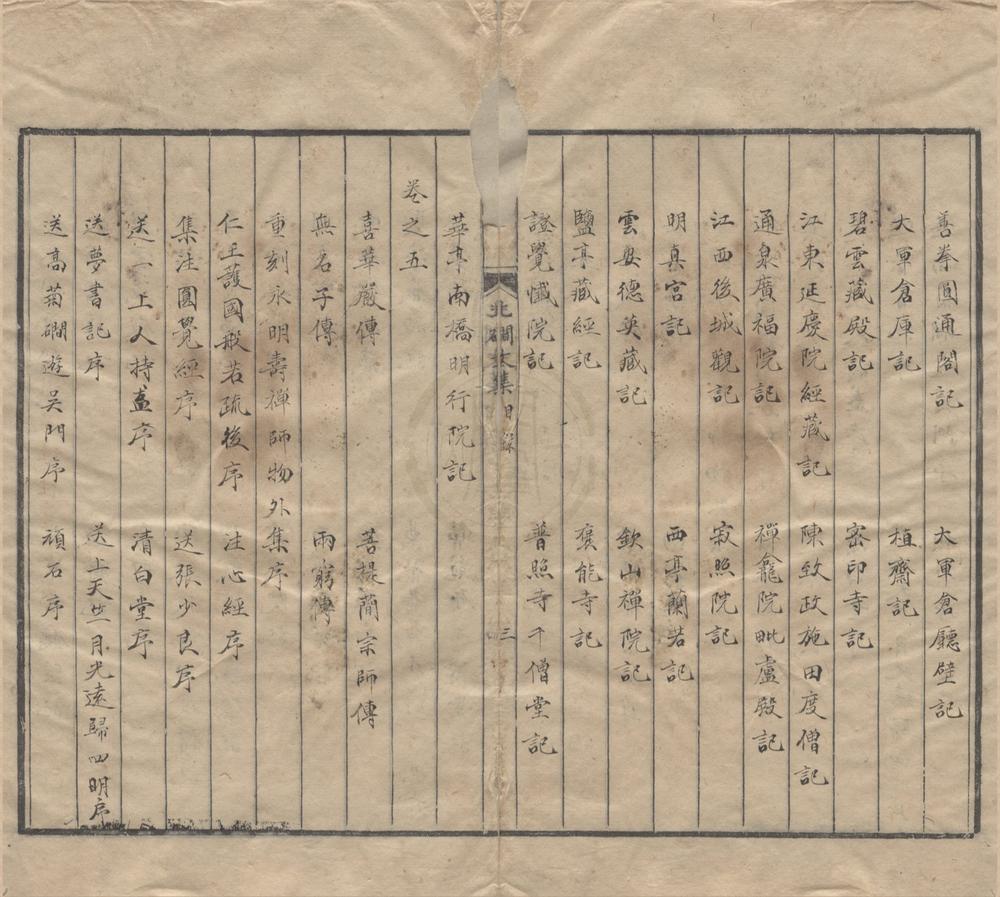 善拳圓通閣記　大軍倉廳壁記
大軍倉庫記　植齋記
碧雲藏殿記　密印寺記
江東延慶院經藏記　陳致政施田度僧記
通泉廣福院記　禪龕院毗盧殿記
明真宮記　西亭蘭若記
江西後城觀記　寂照院記
雲安德英藏記　欽山禪院記
鹽亭藏經記　褒能寺記
證覺懺院記　普照寺千僧堂記
北磵文集　目錄　三
華亭南橋明行院記
卷之五
喜華嚴傳　菩提蕳宗師傳
無名子傳　雨窮傳
重刻永明壽禪師物外集序
仁王護國般若疏後序　注心經序
集注圓覺經序　送張少良序
送一上人持盋序　清白堂序
送夢書記序　送上天竺月光遠歸四明序
送高菊磵遊吳門序　頑石序